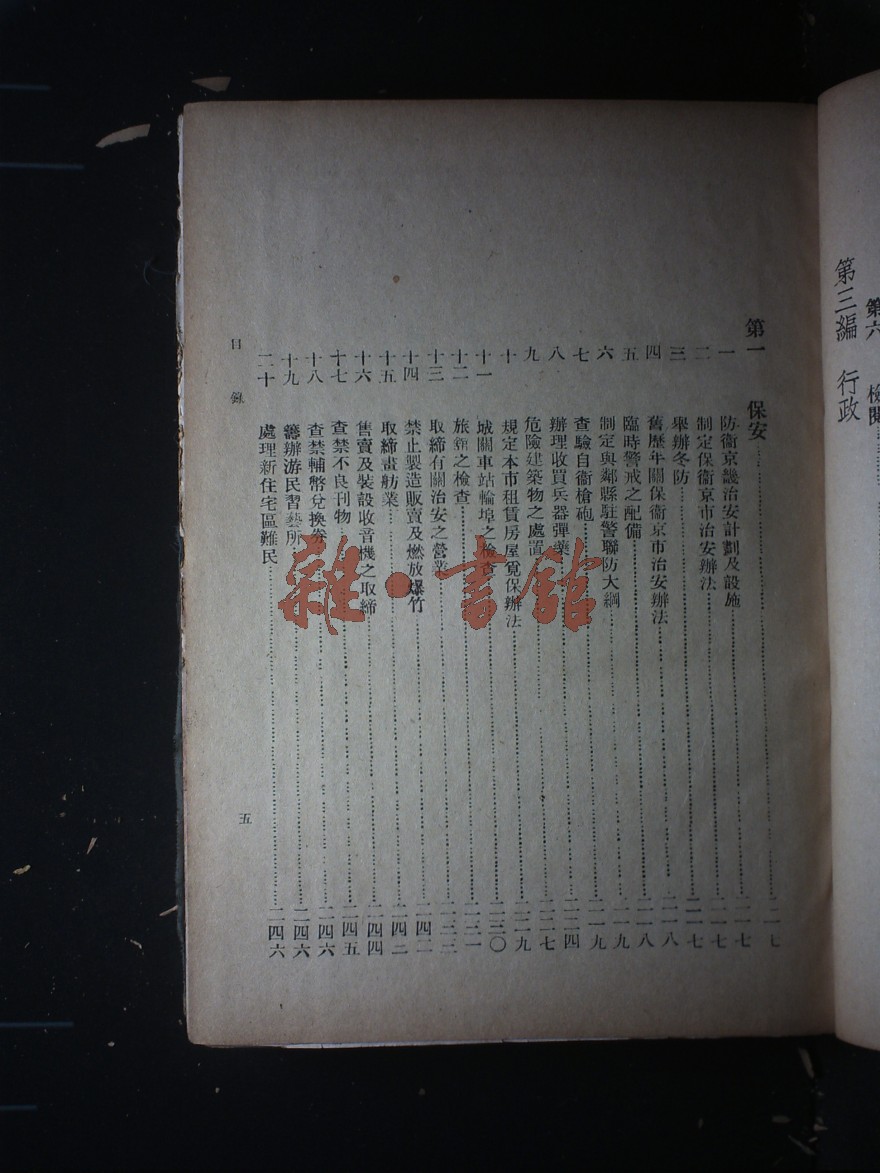 第六 檢閱
第三編 行政
第一 保安 二一七
一 防衞京畿治安計劃及設施 二一七
二 制定保衞京市治安辦法 二一七
三 舉辦冬防 二一七
四 舊歷年關保衞京市治安辦法 二一八
五 臨時警戒之配備 二一八
六 制定與鄰縣駐警聯防大綱 二一九
七 查驗自衞槍砲 二一九
八 辦理收買兵器彈藥 二二四
九 危險建築物之處置 二二七
十 規定本市租賃房屋覓保辦法 二二九
十一 城關車站輪埠之檢查 二三〇
十二 旅館之檢查 二三一
十三 取締有關治安之營業 二三三
十四 禁止製造販賣及燃放爆竹 二四二
十五 取締畫舫業 二四二
十六 售賣及裝設收音機之取締 二四四
十七 查禁不良刊物 二四五
十八 查禁輔幣兌換劵 二四六
十九 籌辦游民習藝所 二四六
二十 處理新住宅區難民 二四六
目錄
五
雜·書館